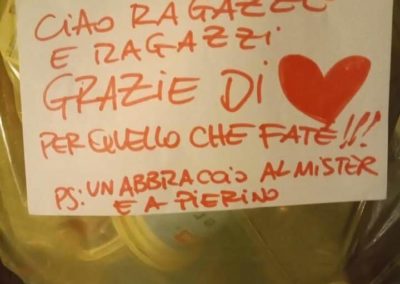 CIAO RAGAZZE
E RAGAZZI
GRAZIE DI ❤
PER QUELLO CHE FATE!!!
PS: UN ABBRACCIO AL MISTER
E A PIERINO